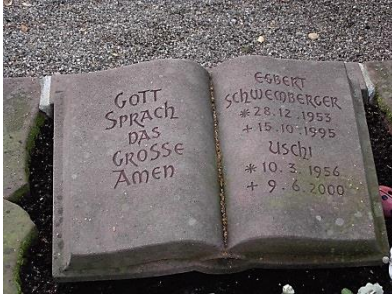 GOTT
SPRACH
DAS
GROSSE
AMEN
EGBERT
SCHWEMBERGER
* 28.12.1953
+ 15.10.1995
USCHI
* 10. 3. 1956
+ 9. 6. 2000